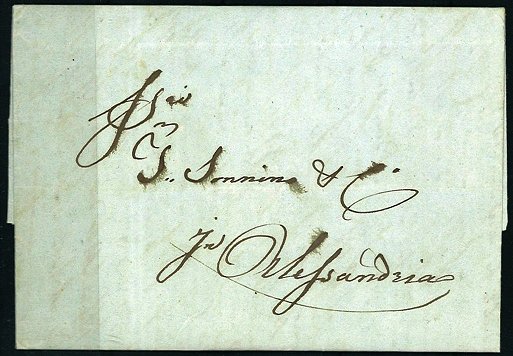 G. Sonnino & C.
in Alessandria